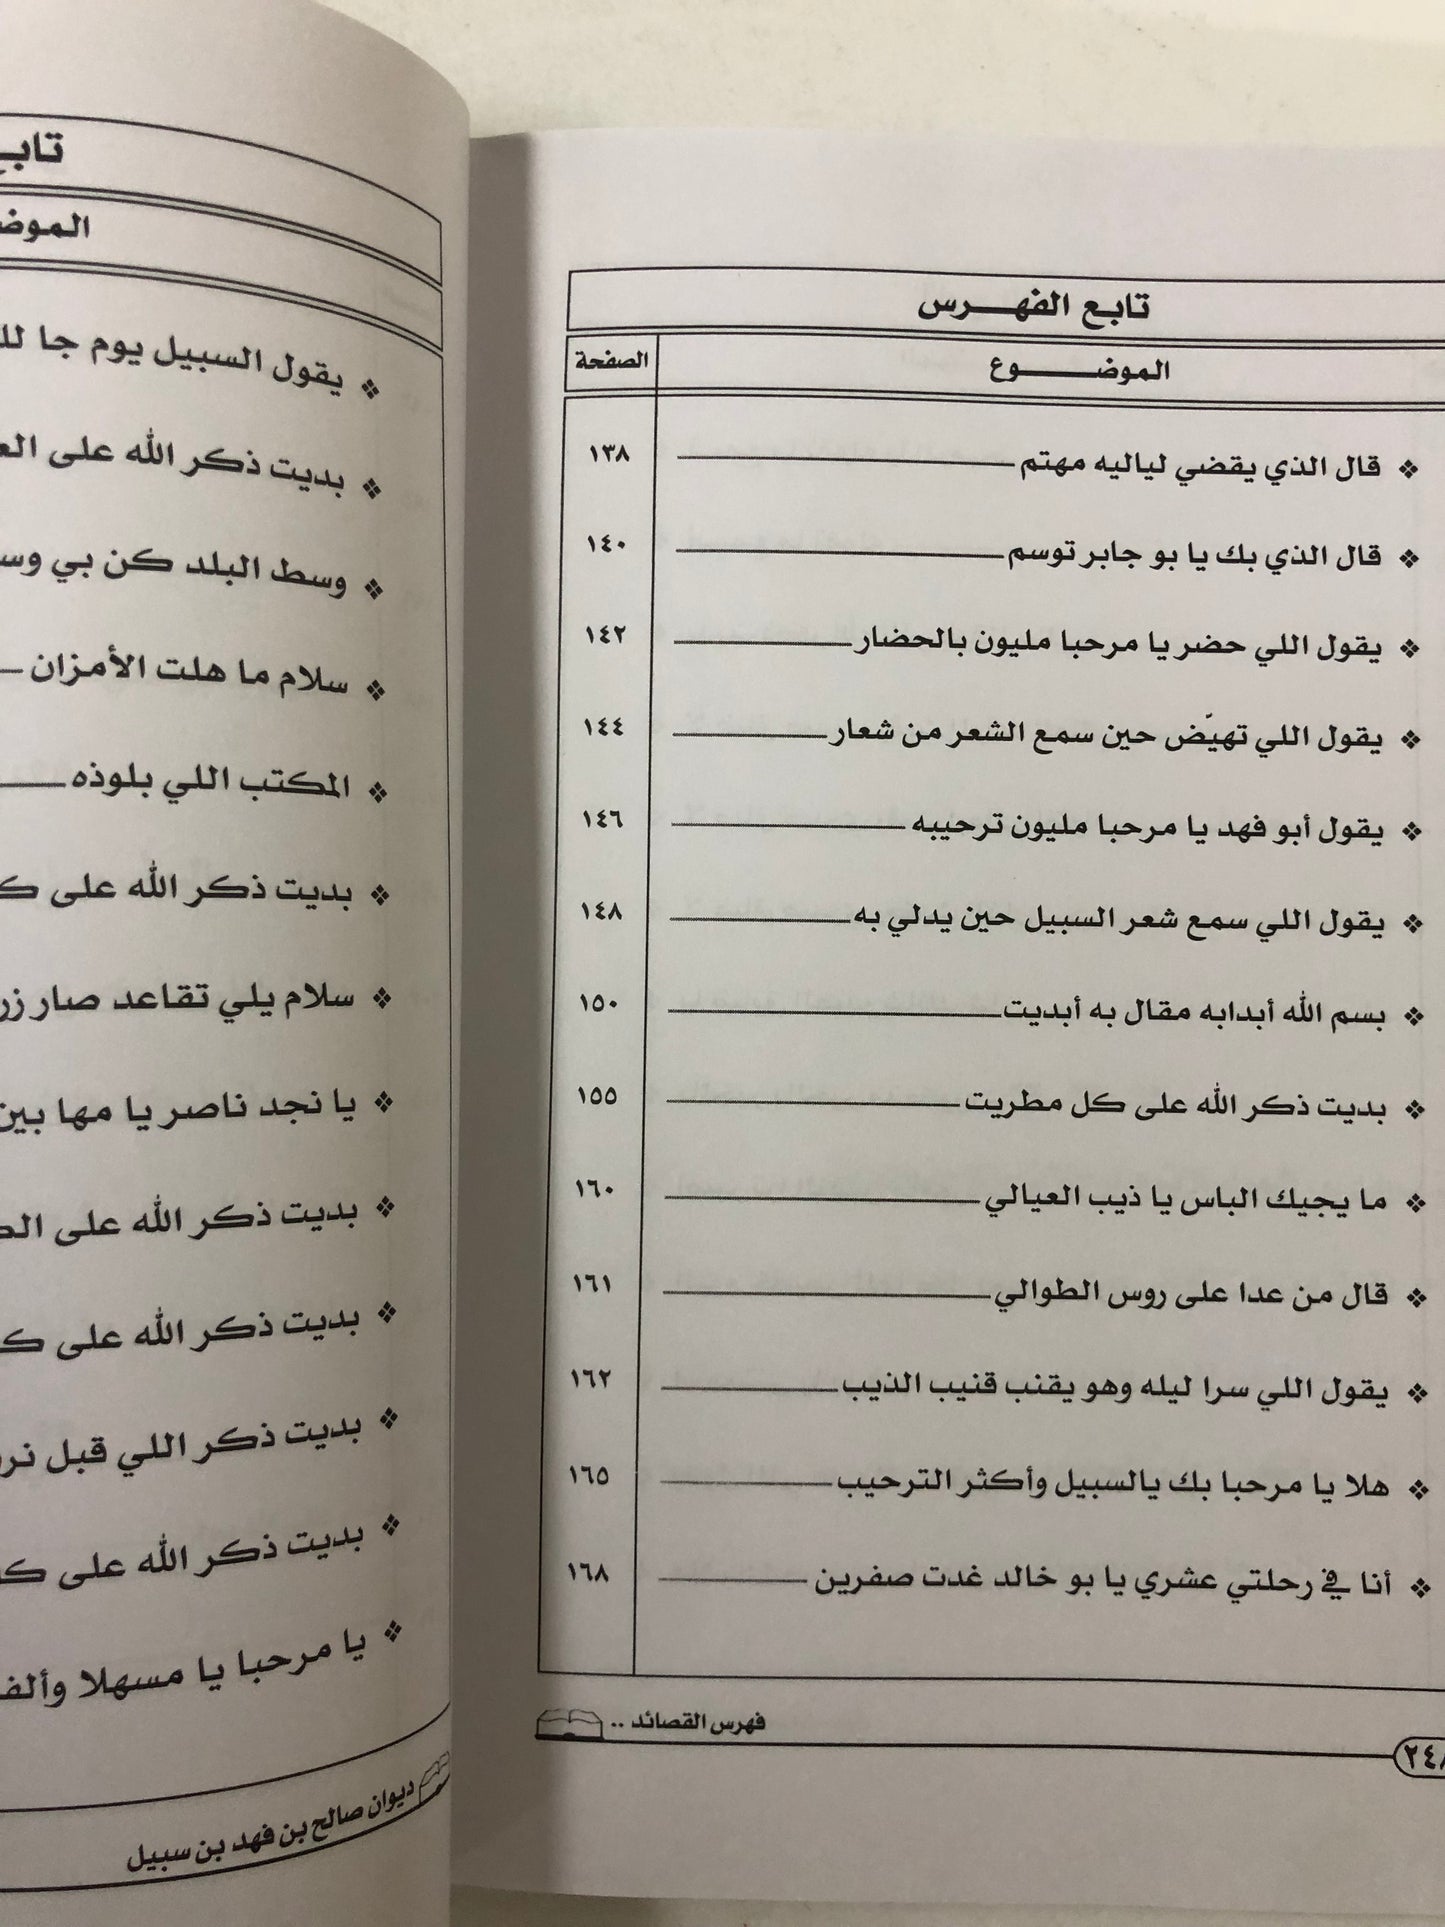 تابع الفهرس
الموضوع الصفحة
❖ قال الذي يقضي لياليه مهتم ١٣٨
❖ قال الذي بك يا بو جابر توسم ١٤٠
❖ يقول اللي حضر يا مرحبا مليون بالحضار ١٤٢
❖ يقول اللي تهيّض حين سمع الشعر من شعار ١٤٤
❖ يقول أبو فهد يا مرحبا مليون ترحيبه ١٤٦
❖ يقول اللي سمع شعر السبيل حين يدلي به ١٤٨
❖ بسم الله أبدابه مقال به أبديت ١٥٠
❖ بديت ذكر الله على كل مطريت ١٥٥
❖ ما يجيك الباس يا ذيب العيالي ١٦٠
❖ قال من عدا على روس الطوالي ١٦١
❖ يقول اللي سرا ليله وهو يقنب قنيب الذيب ١٦٢
❖ هلا يا مرحبا بك يالسبيل وأكثر الترحيب ١٦٥
❖ أنا في رحلتي عشري يا بو خالد غدت صفرين ١٦٨
فهرس القصائد ..
٢٤٨
تابع
❖ يقول السبيل يوم جا
❖ بديت ذكر الله على
❖ وسط البلد كن بي
❖ سلام ما هلت الأمزان
❖ المكتب اللي بلوذه
❖ بديت ذكر الله على
❖ سلام يلي تقاعد صار
❖ يا نجد ناصر يا مها بين
❖ بديت ذكر الله على
❖ بديت ذكر الله على
❖ بديت ذكر اللي قبل
❖ بديت ذكر الله على
❖ يا مرحبا يا مسهلا
ديوان صالح بن فهد بن سبيل